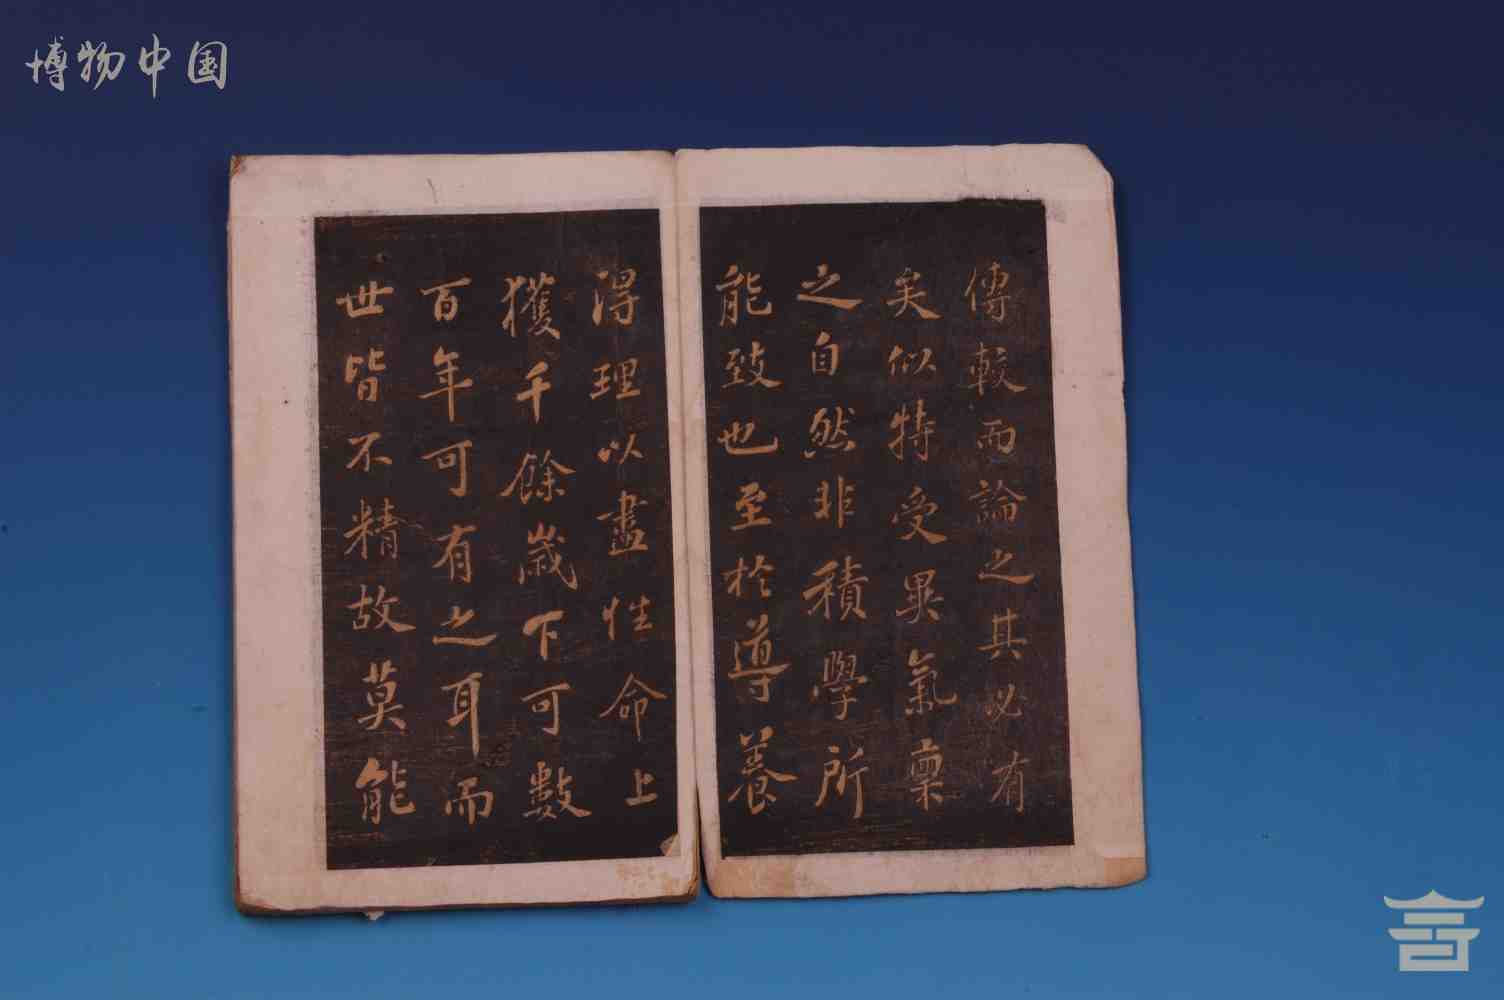 博物中国
傳較而論之其必有
矣似特受異氣稟
之自然非積學所
能致也至於導養
得理以盡性命上
獲千餘歲下可數
百年可有之耳而
世皆不精故莫能